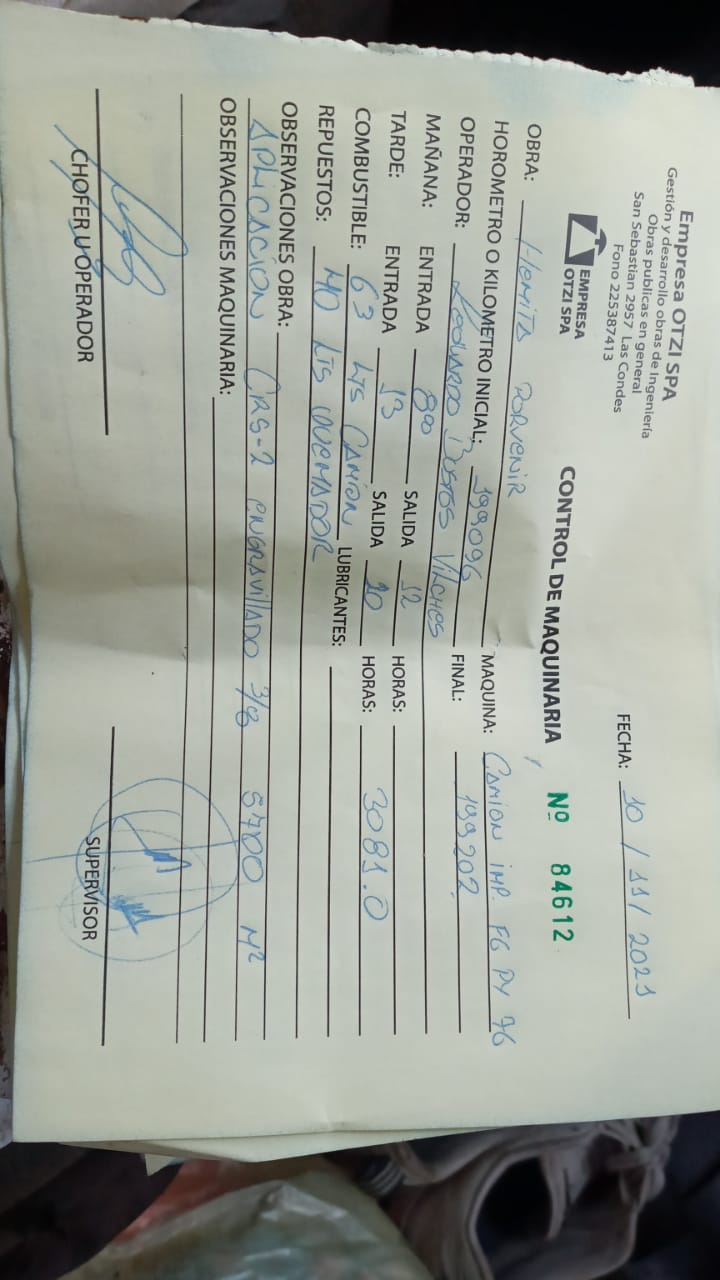 Empresa OTZI SPA
Gestión y desarrollo obras de Ingeniería
Obras publicas en general
San Sebastian 2957 Las Condes
Fono 225387413
EMPRESA
OTZI SPA
FECHA: 10 / 11 / 2021
CONTROL DE MAQUINARIA Nº 84612
OBRA: Hemita Porvenir MAQUINA: Camion imp. FG PY 76
HOROMETRO O KILOMETRO INICIAL: 199096 FINAL: 199202
OPERADOR: Leonardo Bustos Vilches
MAÑANA: ENTRADA 8 00 SALIDA 12 HORAS:
TARDE: ENTRADA 13 SALIDA 20 HORAS: 3081.0
COMBUSTIBLE: 63 Lts Camion LUBRICANTES:
REPUESTOS: 40 Lts quemador
OBSERVACIONES OBRA:
Aplicacion CRS-2 engravillado 3/8 5700 M²
OBSERVACIONES MAQUINARIA:
CHOFER U OPERADOR SUPERVISOR